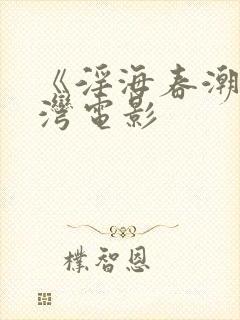 《淫海春潮
灣電影
樸智恩